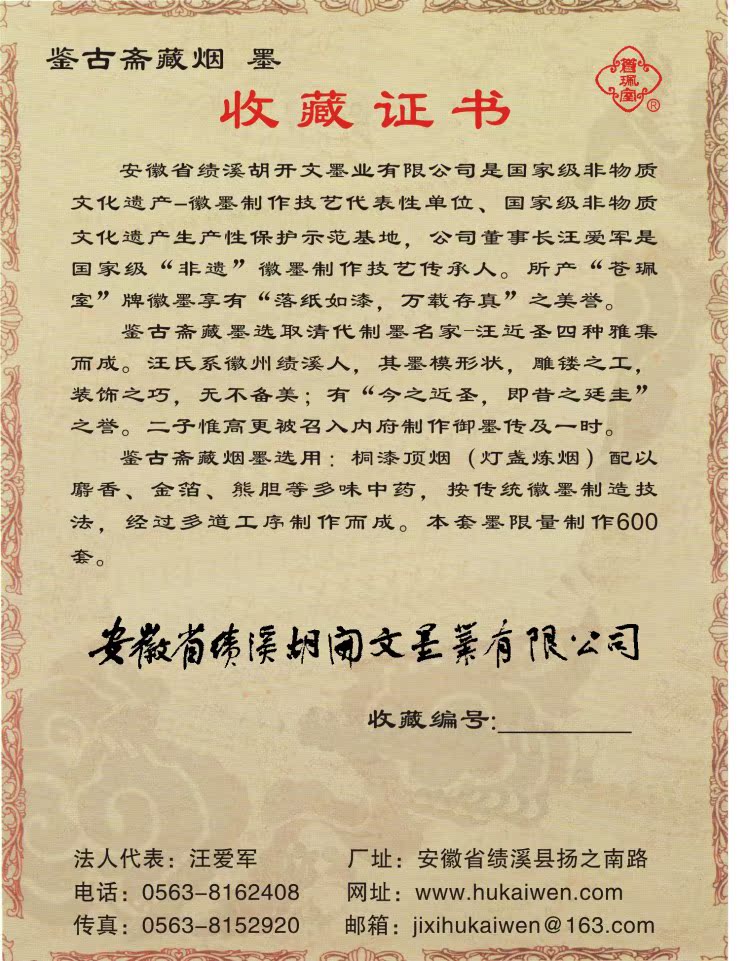 鉴古斋藏烟 墨
苍珮室
®
收藏证书
安徽省绩溪胡开文墨业有限公司是国家级非物质
文化遗产-徽墨制作技艺代表性单位、国家级非物质
文化遗产生产性保护示范基地，公司董事长汪爱军是
国家级“非遗”徽墨制作技艺传承人。所产“苍珮
室”牌徽墨享有“落纸如漆，万载存真”之美誉。
鉴古斋藏墨选取清代制墨名家-汪近圣四种雅集
而成。汪氏系徽州绩溪人，其墨模形状，雕镂之工，
装饰之巧，无不备美；有“今之近圣，即昔之廷圭”
之誉。二子惟高更被召入内府制作御墨传及一时。
鉴古斋藏烟墨选用：桐漆顶烟（灯盏炼烟）配以
麝香、金箔、熊胆等多味中药，按传统徽墨制造技
法，经过多道工序制作而成。本套墨限量制作600
套。
安徽省绩溪胡开文墨业有限公司
收藏编号:
法人代表：汪爱军 厂址：安徽省绩溪县扬之南路
电话：0563-8162408 网址：www.hukaiwen.com
传真：0563-8152920 邮箱：jixihukaiwen@163.com